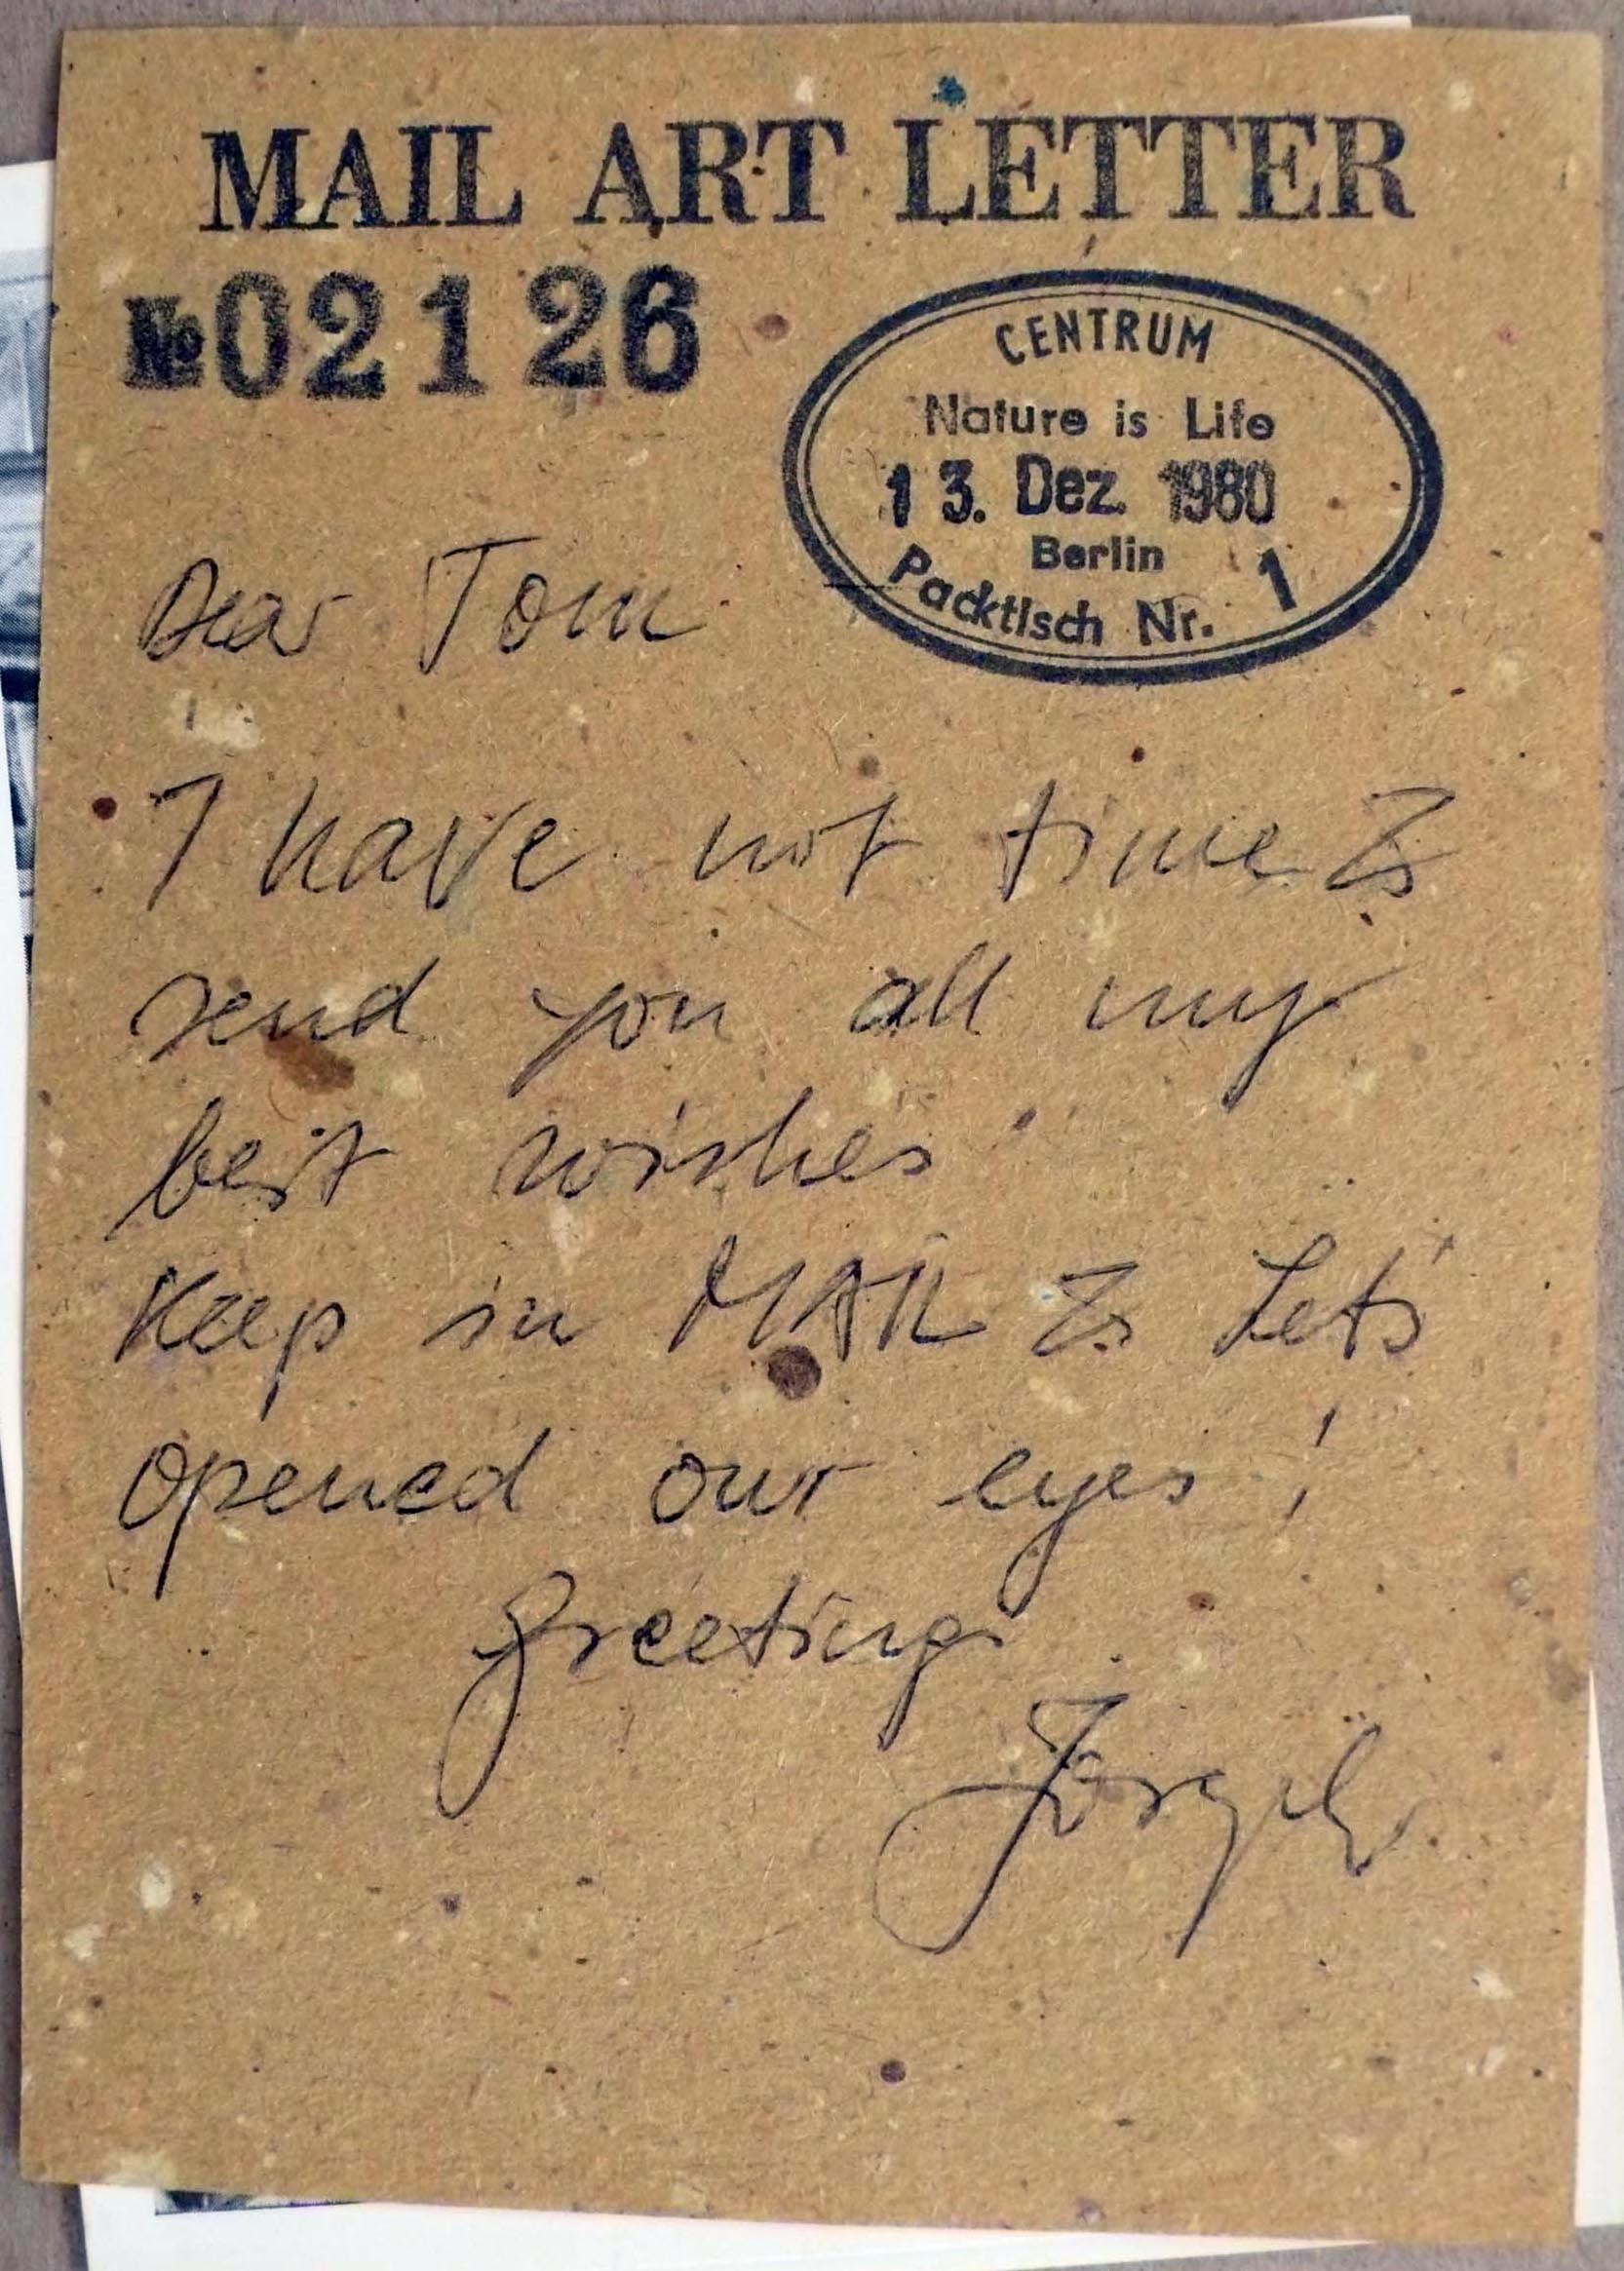 MAIL ART LETTER
№02126
CENTRUM
Nature is Life
13. Dez. 1980
Berlin
Packtisch Nr. 1
Dear Tom
I have not time to
send you all my
best wishes!
Keep in MAIL to Let's
opened our eyes!
Greetings